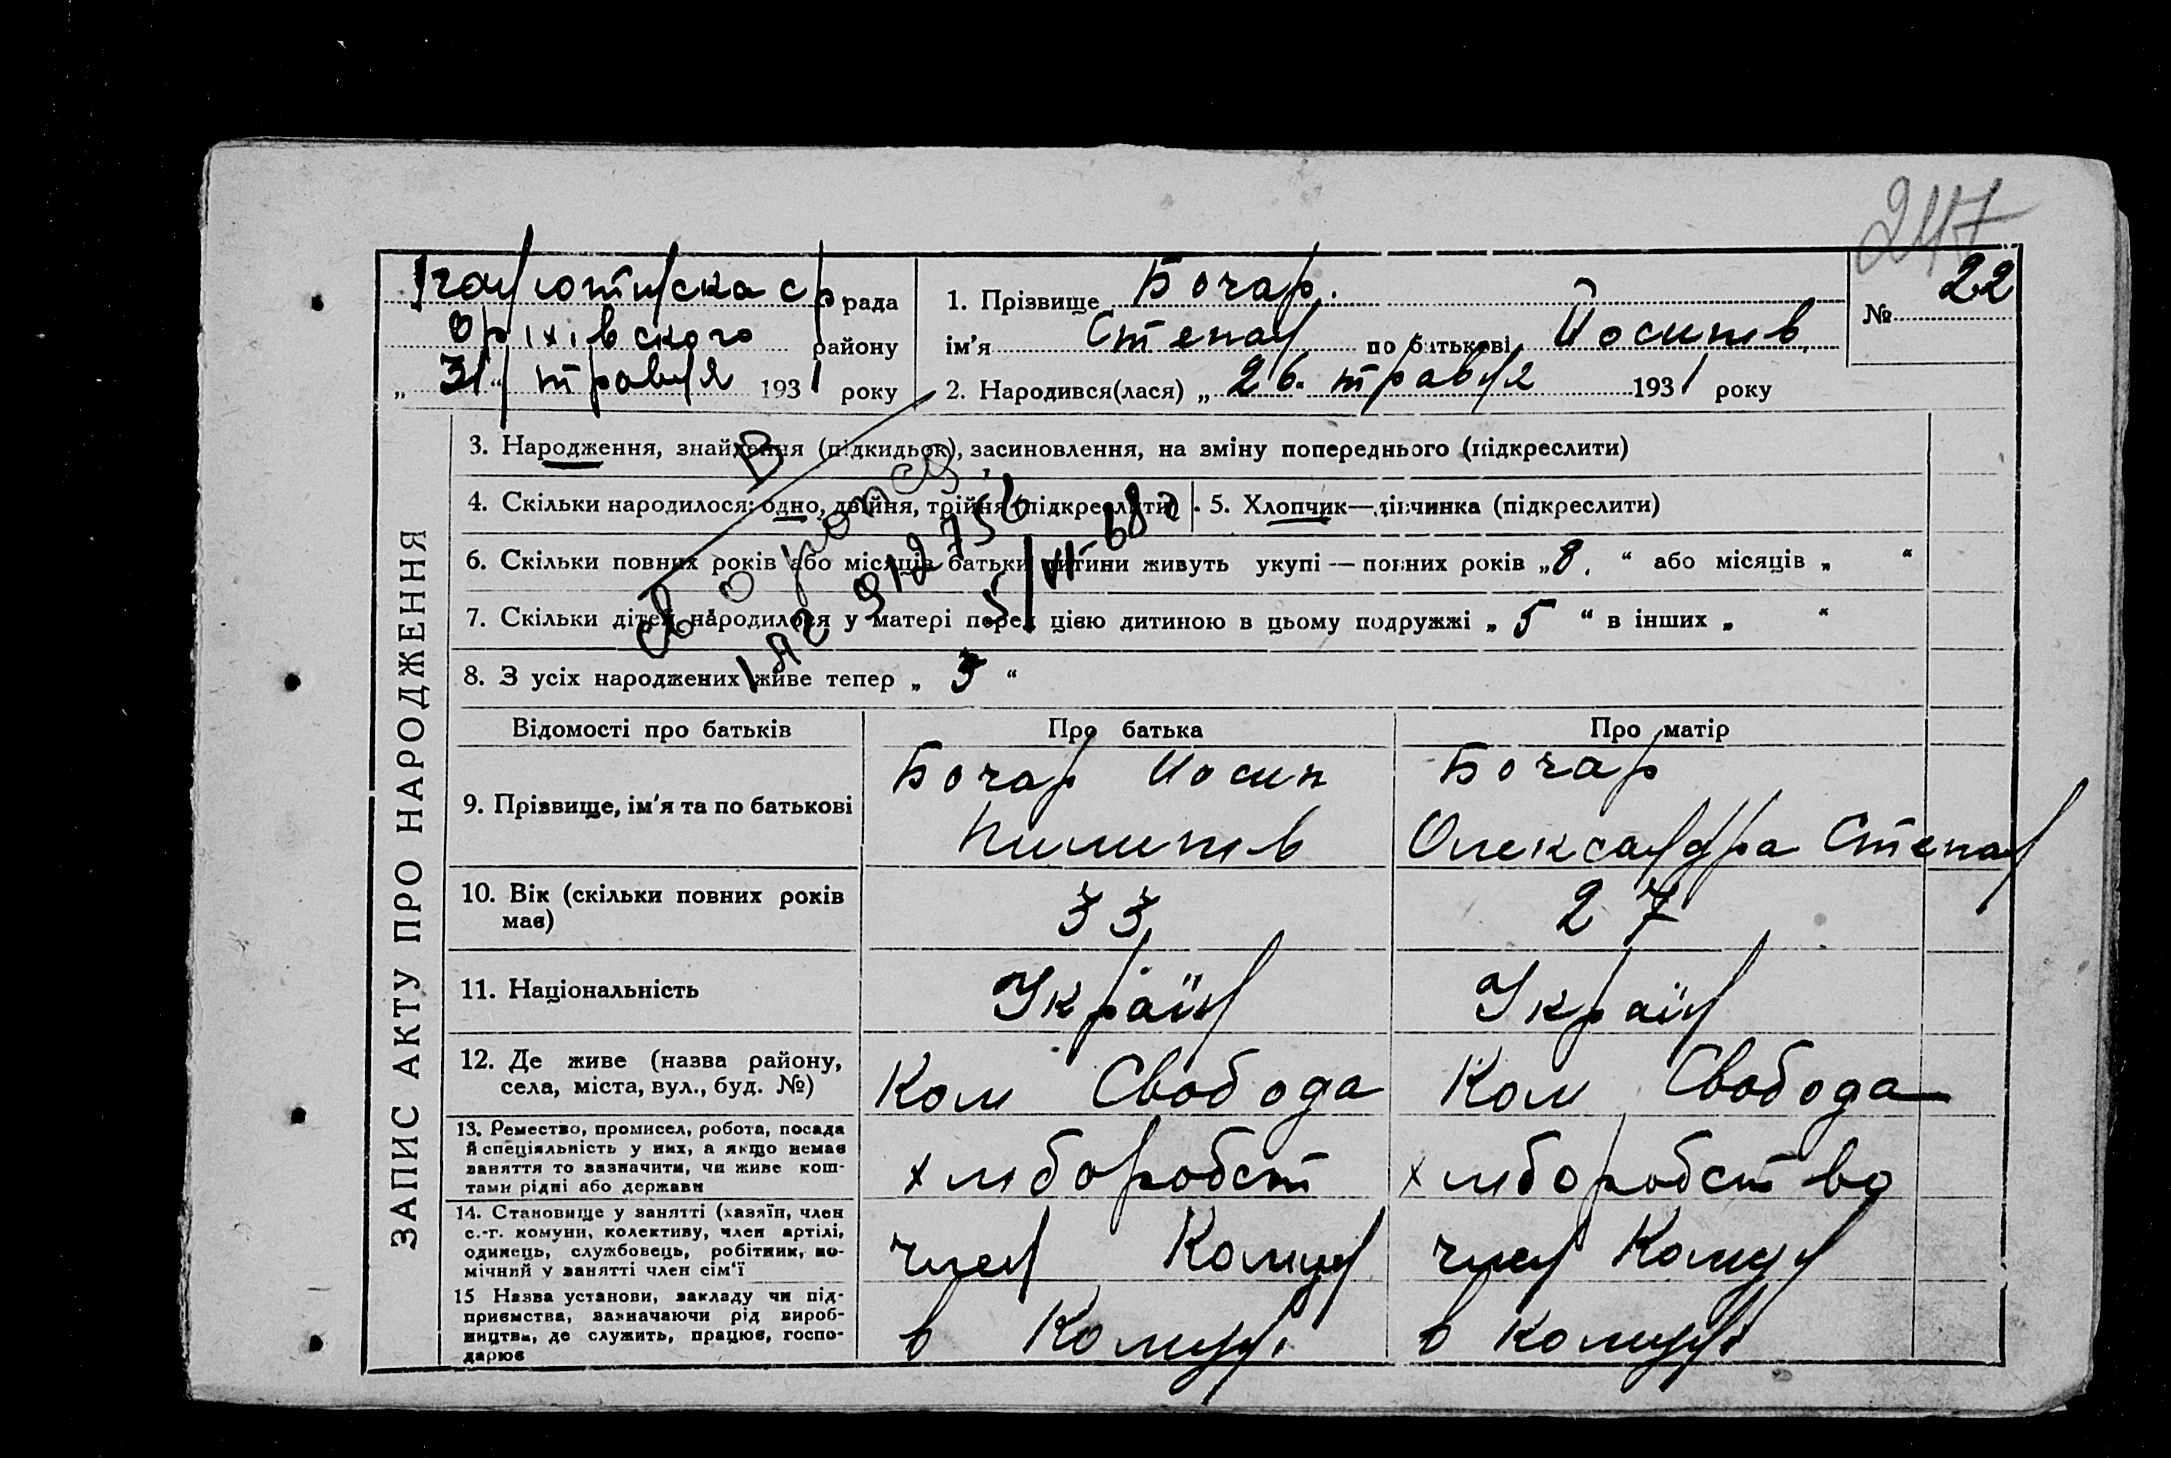 247
рада
Оріхівського району
„31“ травня 1931 року
1. Прізвище Бочар.
ім'я Степан по батькові Йосипів
2. Народився(лася) „26. травня 1931 року
№ 22
ЗАПИС АКТУ ПРО НАРОДЖЕННЯ
3. Народження, знайдення (підкидьок), засиновлення, на зміну попереднього (підкреслити)
4. Скільки народилося: одно, двійня, трійня (підкреслити)
5. Хлопчик—дівчинка (підкреслити)
6. Скільки повних років або місяців батьки дитини живуть укупі — повних років „8. “ або місяців „ “
7. Скільки дітей народилося у матері перед цією дитиною в цьому подружжі „ 5 “ в інших „ “
8. З усіх народжених живе тепер „ 3 “
912756
5/VI-68г
Відомості про батьків Про батька Про матір
9. Прізвище, ім'я та по батькові
Бочар Йосип
Пилипів
Бочар
Олександра Степан
10. Вік (скільки повних років
має)
33
27
11. Національність
Україн
Україн
12. Де живе (назва району,
села, міста, вул., буд. №)
Ком Свобода
Ком Свобода
13. Ремество, промисел, робота, посада
й спеціяльність у них, а якщо немає
заняття то зазначити, чи живе кош-
тами рідні або держави
хліборобст
хліборобство
14. Становище у занятті (хазяїн, член
с.-г. комуни, колективу, член артілі,
одинець, службовець, робітник, по-
мічний у занятті член сім'ї
член Комун
член Комун
15 Назва установи, закладу чи під-
приємства, зазначаючи рід вироб-
ництва, де служить, працює, госпо-
дарює
в Комуні
в комуні